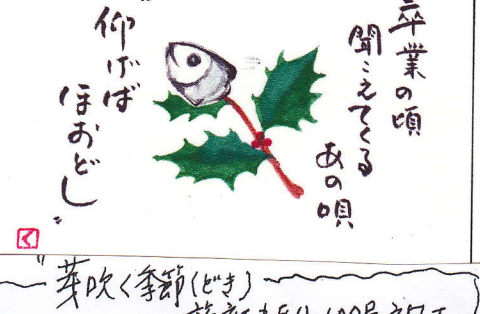 卒業の頃
聞こえてくる
あの唄
〝仰げば
ほおどし〟
く
〝芽吹く季節(どき)